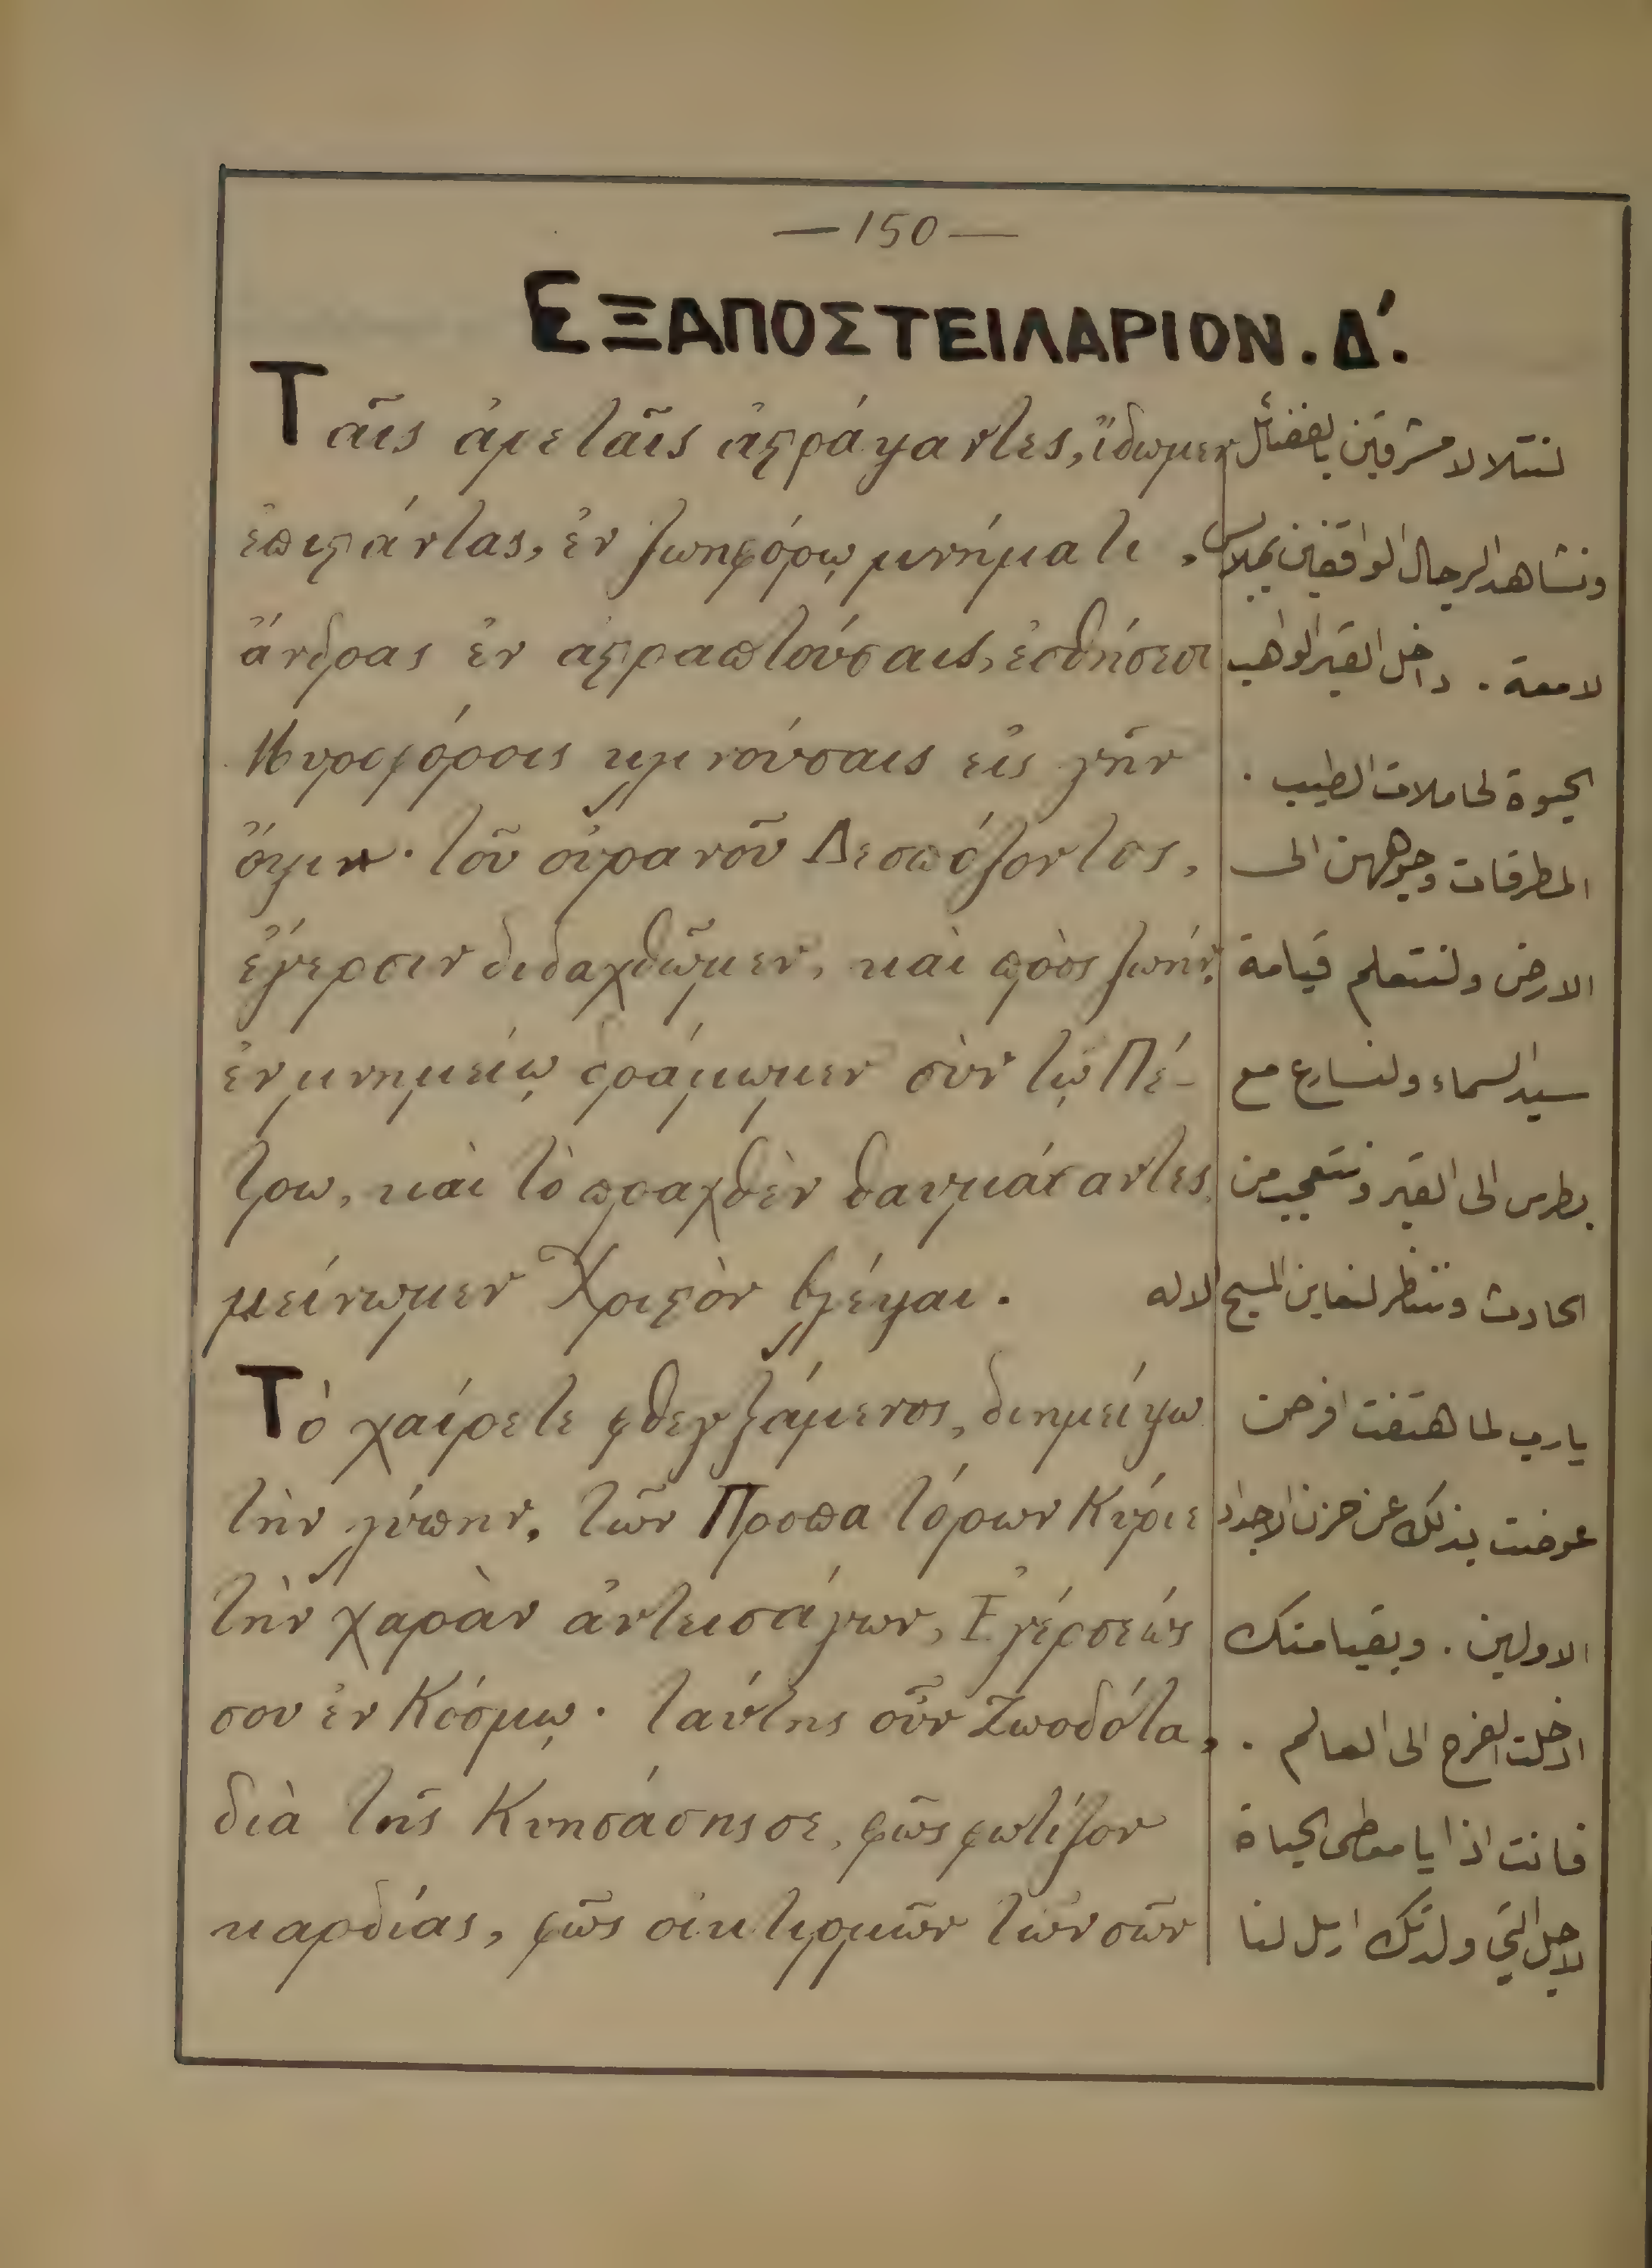 —150—
ΕΞΑΠΟΣΤΕΙΛΑΡΙΟΝ. Δ΄.
Ταῖς ἀρεταῖς ἀϛράψαντες, ἴδωμεν
ἐπιϛάντας, ἐν ζωηφόρῳ μνήματι,
ἄνδρας ἐν αϛραπτούσαις, ἐσθήσεσι
Μυροφόροις κλινούσαις εἰς γῆν
ὄψιν· τοῦ οὐρανοῦ Δεσπόζοντος,
ἔγερσιν διδαχθῶμεν, καὶ πρὸς ζωήν,
ἐν μνημείῳ δράμωμεν σὺν τῷ Πέ-
τρω, καὶ τὸ πραχθὲν θαυμάσαντες,
μείνωμεν Χριϛὸν βλέψαι.
Τὸ χαίρετε φθεγξάμενος, διημείψω
τὴν λύπην, τῶν Προπατόρων Κύριε
τὴν χαρὰν ἀντεισάγων, Ἐγέρσεώς
σου ἐν Κόσμῳ· ταύτης οὖν Ζωοδότα,
διὰ τῆς Κυησάσης σε, φῶς φωτίζον
καρδίας, φῶς οἰκτιρμῶν τῶν σῶν
لنتلالا مشرقين بالفضائل
ونشاهد الرجال الواقفين بملابس
لامعة. داخل القبر الواهب
الحيوة لحاملات الطيب.
المطرقات وجوههن الى
الارض ولنتعلم قيامة
سيد السماء ولنسارع مع
بطرس الى القبر ونتعجب من
الحادث وننتظر لنعاين المسيح الاله
يارب لما هتفت افرحن
عوضت بذلك عن حزن الاجداد
الاولين. وبقيامتك
ادخلت الفرح الى العالم.
فانت اذا يا معطى الحياة
لاجل التي ولدتك ارسل لنا